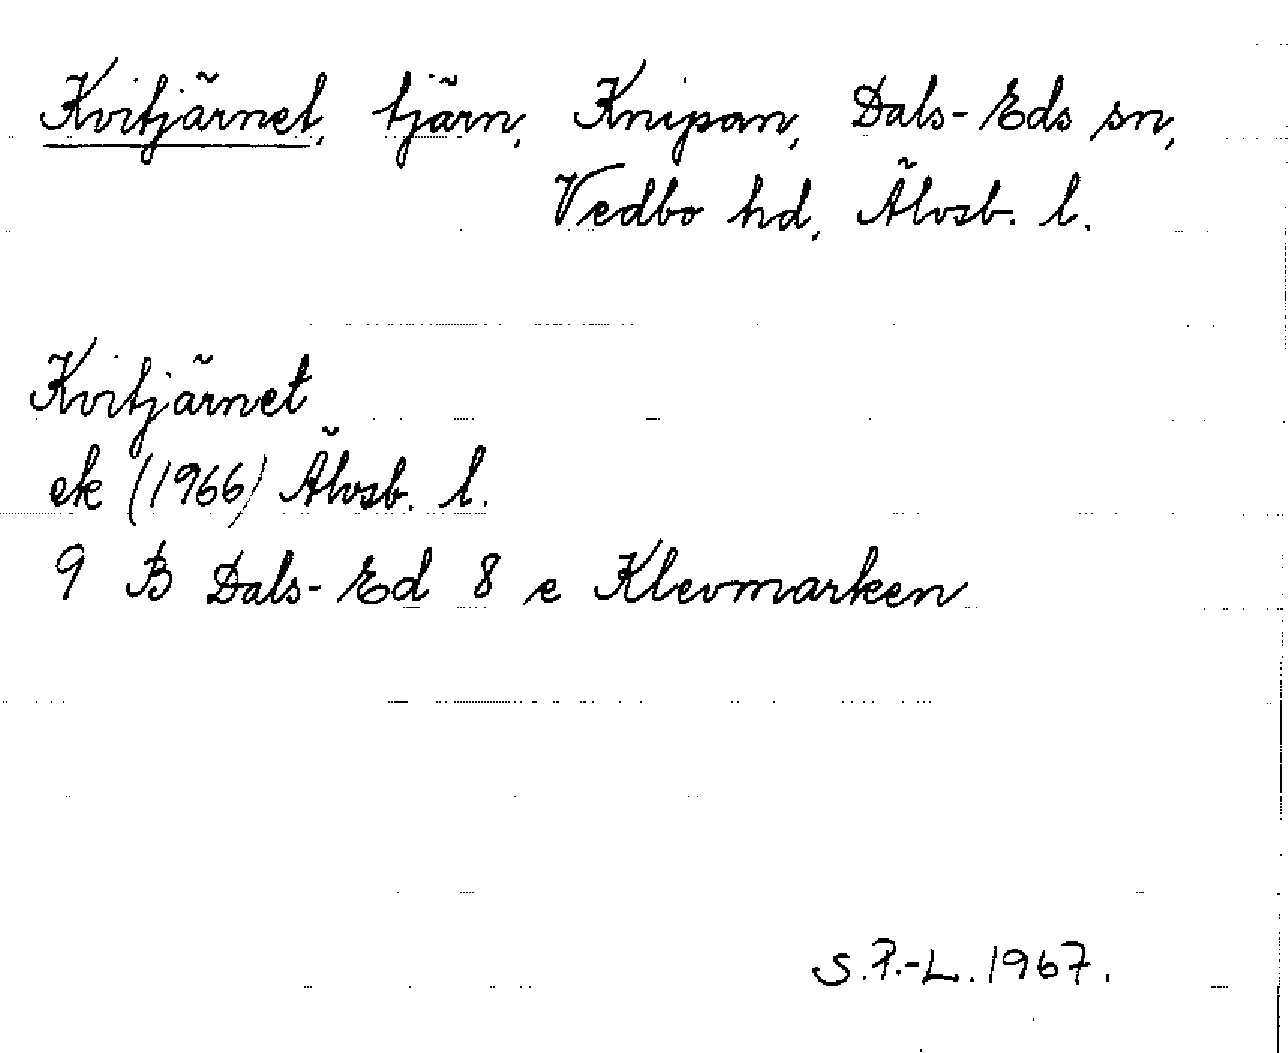 Kvitjärnet, tjärn, Knipan, Dals-Eds sn,
Vedbo hd, Älvsb. l.
Kvitjärnet
ek (1966) Älvsb. l.
9 B Dals-Ed 8 e Klevmarken
S.P.-L. 1967.